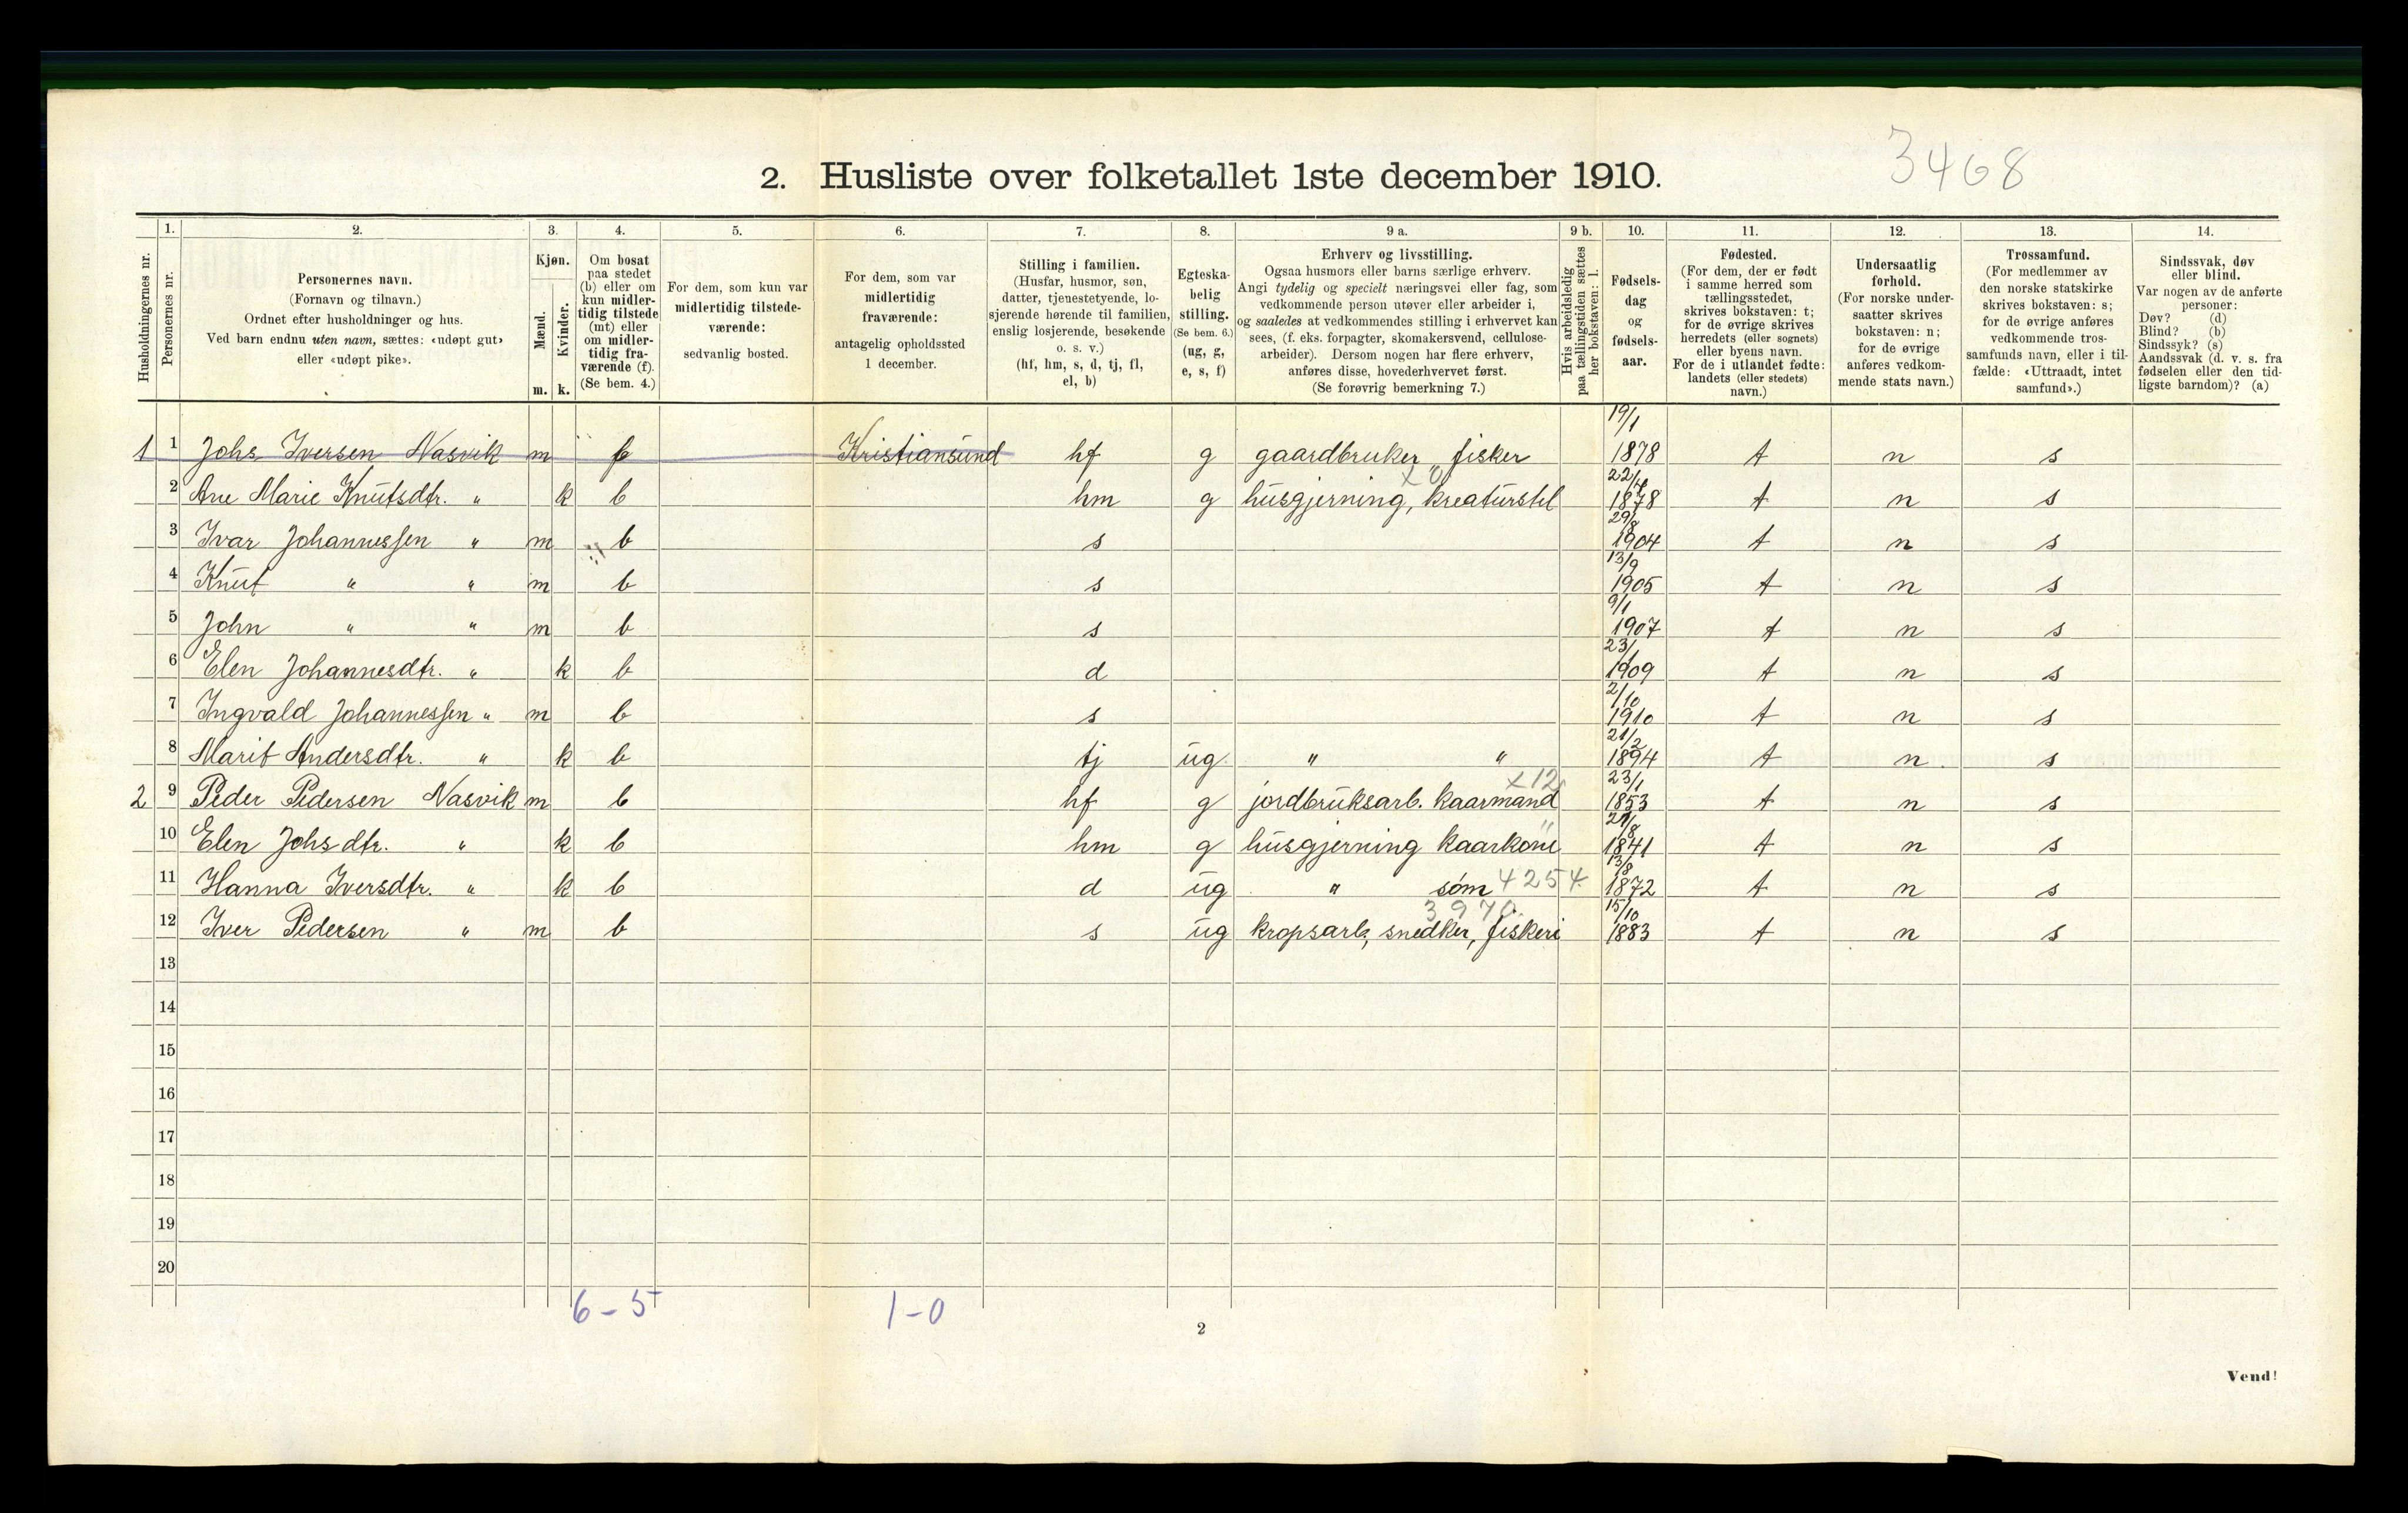 3468
2. Husliste over folketallet 1ste december 1910.
Husholdningernes nr.
1. Personernes nr.
2. Personernes navn. (Fornavn og tilnavn.) Ordnet efter husholdninger og hus. Ved barn endnu uten navn, sættes: «udøpt gut» eller «udøpt pike».
3. Kjøn. Mænd. m. Kvinder. k.
4. Om bosat paa stedet (b) eller om kun midlertidig tilstede (mt) eller om midlertidig fraværende (f). (Se bem. 4.)
5. For dem, som kun var midlertidig tilstedeværende: sedvanlig bosted.
6. For dem, som var midlertidig fraværende: antagelig opholdssted 1 december.
7. Stilling i familien. (Husfar, husmor, søn, datter, tjenestetyende, losjerende hørende til familien, enslig losjerende, besøkende o. s. v.) (hf, hm, s, d, tj, fl, el, b)
8. Egteskabelig stilling. (Se bem. 6.) (ug, g, e, s, f)
9 a. Erhverv og livsstilling. Ogsaa husmors eller barns særlige erhverv. Angi tydelig og specielt næringsvei eller fag, som vedkommende person utøver eller arbeider i, og saaledes at vedkommendes stilling i erhvervet kan sees, (f. eks. forpagter, skomakersvend, cellulosearbeider). Dersom nogen har flere erhverv, anføres disse, hovederhvervet først. (Se forøvrig bemerkning 7.)
9 b. Hvis arbeidsledig paa tællingstiden sættes her bokstaven: l.
10. Fødselsdag og fødselsaar.
11. Fødested. (For dem, der er født i samme herred som tællingsstedet, skrives bokstaven: t; for de øvrige skrives herredets (eller sognets) eller byens navn. For de i utlandet fødte: landets (eller stedets) navn.)
12. Undersaatlig forhold. (For norske undersaatter skrives bokstaven: n; for de øvrige anføres vedkommende stats navn.)
13. Trossamfund. (For medlemmer av den norske statskirke skrives bokstaven: s; for de øvrige anføres vedkommende trossamfunds navn, eller i tilfælde: «Uttraadt, intet samfund».)
14. Sindssvak, døv eller blind. Var nogen av de anførte personer: Døv? (d) Blind? (b) Sindssyk? (s) Aandssvak (d. v. s. fra fødselen eller den tidligste barndom)? (a)
1 1 Johs Iversen Nasvik m b Kristiansund hf g gaardbruker fisker 19/1 1878 t n s
2 Ane Marie Knutsdtr. " k b hm g husgjerning, kreaturstel 1878 t n s
3 Ivar Johannessen " m b s 29/8 1904 t n s
4 Knut " " m b s 13/9 1905 t n s
5 John " " m b s 9/1 1907 t n s
6 Elen Johannesdtr. " k b d 23/1 1909 t n s
7 Ingvald Johannessen " m b s 2/10 1910 t n s
8 Marit Andersdtr. " k b tj ug " " 21/2 1894 t n s
x12
2 9 Peder Pedersen Nasvik m b hf g jordbruksarb. kaarmand 23/1 1853 t n s
10 Elen Johsdtr. " k b hm g husgjerning kaarkone 1841 t n s
11 Hanna Iversdtr. " k b d ug " søm 4254 13/8 1872 t n s
3970
12 Iver Pedersen " m b s ug kropsarb, snedker, fiskeri 15/10 1883 t n s
13
14
15
16
17
18
19
20
6-5 1-0
2
Vend!